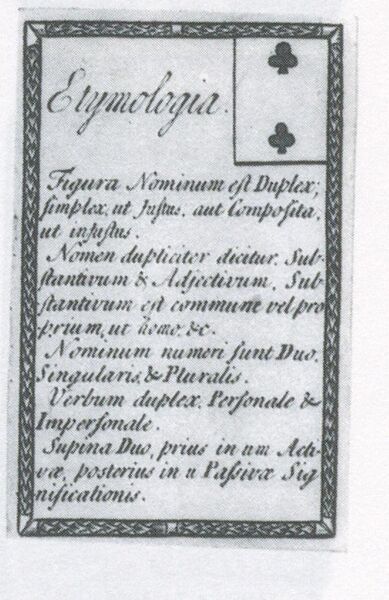 Etymologia.
Figura Nominum eſt Duplex;
ſimplex, ut Juſtus, aut Compoſita,
ut injuſtus.
Nomen dupliciter dicitur, Sub-
ſtantivum & Adjectivum, Sub-
ſtantivum eſt commune vel pro
prium, ut homo, &c.
Nominum numeri ſunt Duo,
Singularis, & Pluralis.
Verbum duplex, Perſonale &
Imperſonale.
Supina Duo, prius in um Acti-
væ, poſterius in u Paſsivæ Sig
nificationis.